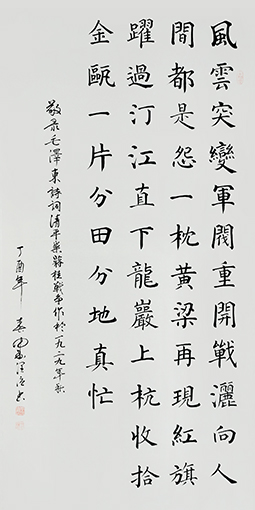 風雲突變軍閥重開戰灑向人
間都是怨一枕黃梁再現紅旗
躍過汀江直下龍巖上杭收拾
金甌一片分田分地真忙
敬录毛澤東詩詞清平樂蔣桂戰爭作於一九二九年秋
丁酉年春